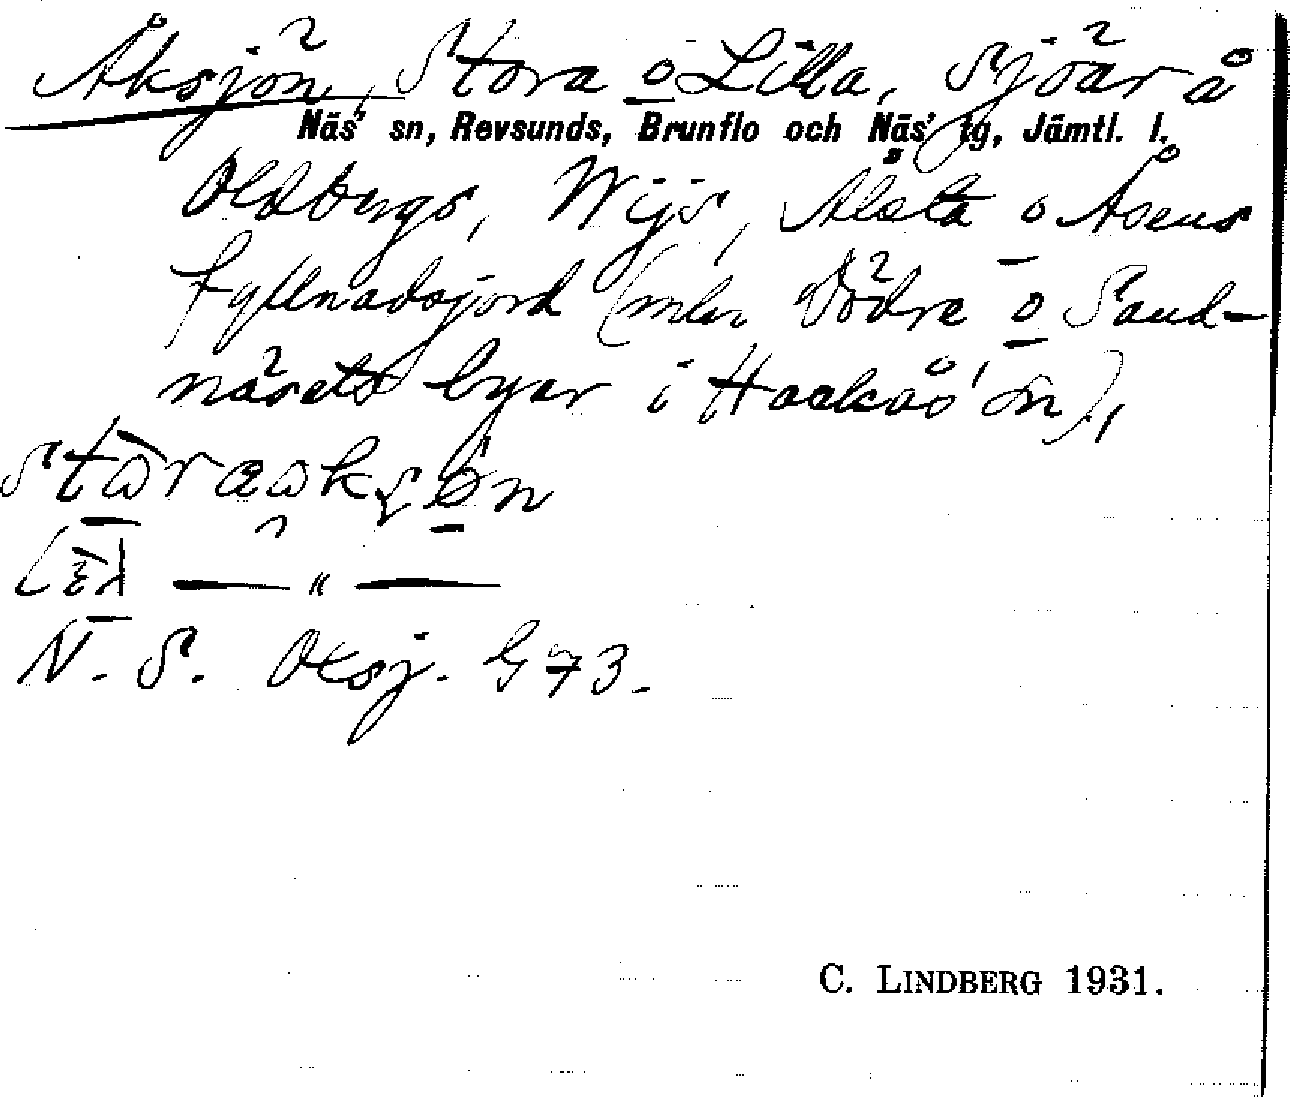 Åksjön, Stora o Lilla, sjöar å
Näs' sn, Revsunds, Brunflo och Näs' tg, Jämtl. l.
Oldbergs, Wijs, Älsta o Åsens
fyllnadsjord (mln Vödre o Sand-
näsets byar i Hackås' sn),
N. S. Oksj. G 73.
C. LINDBERG 1931.